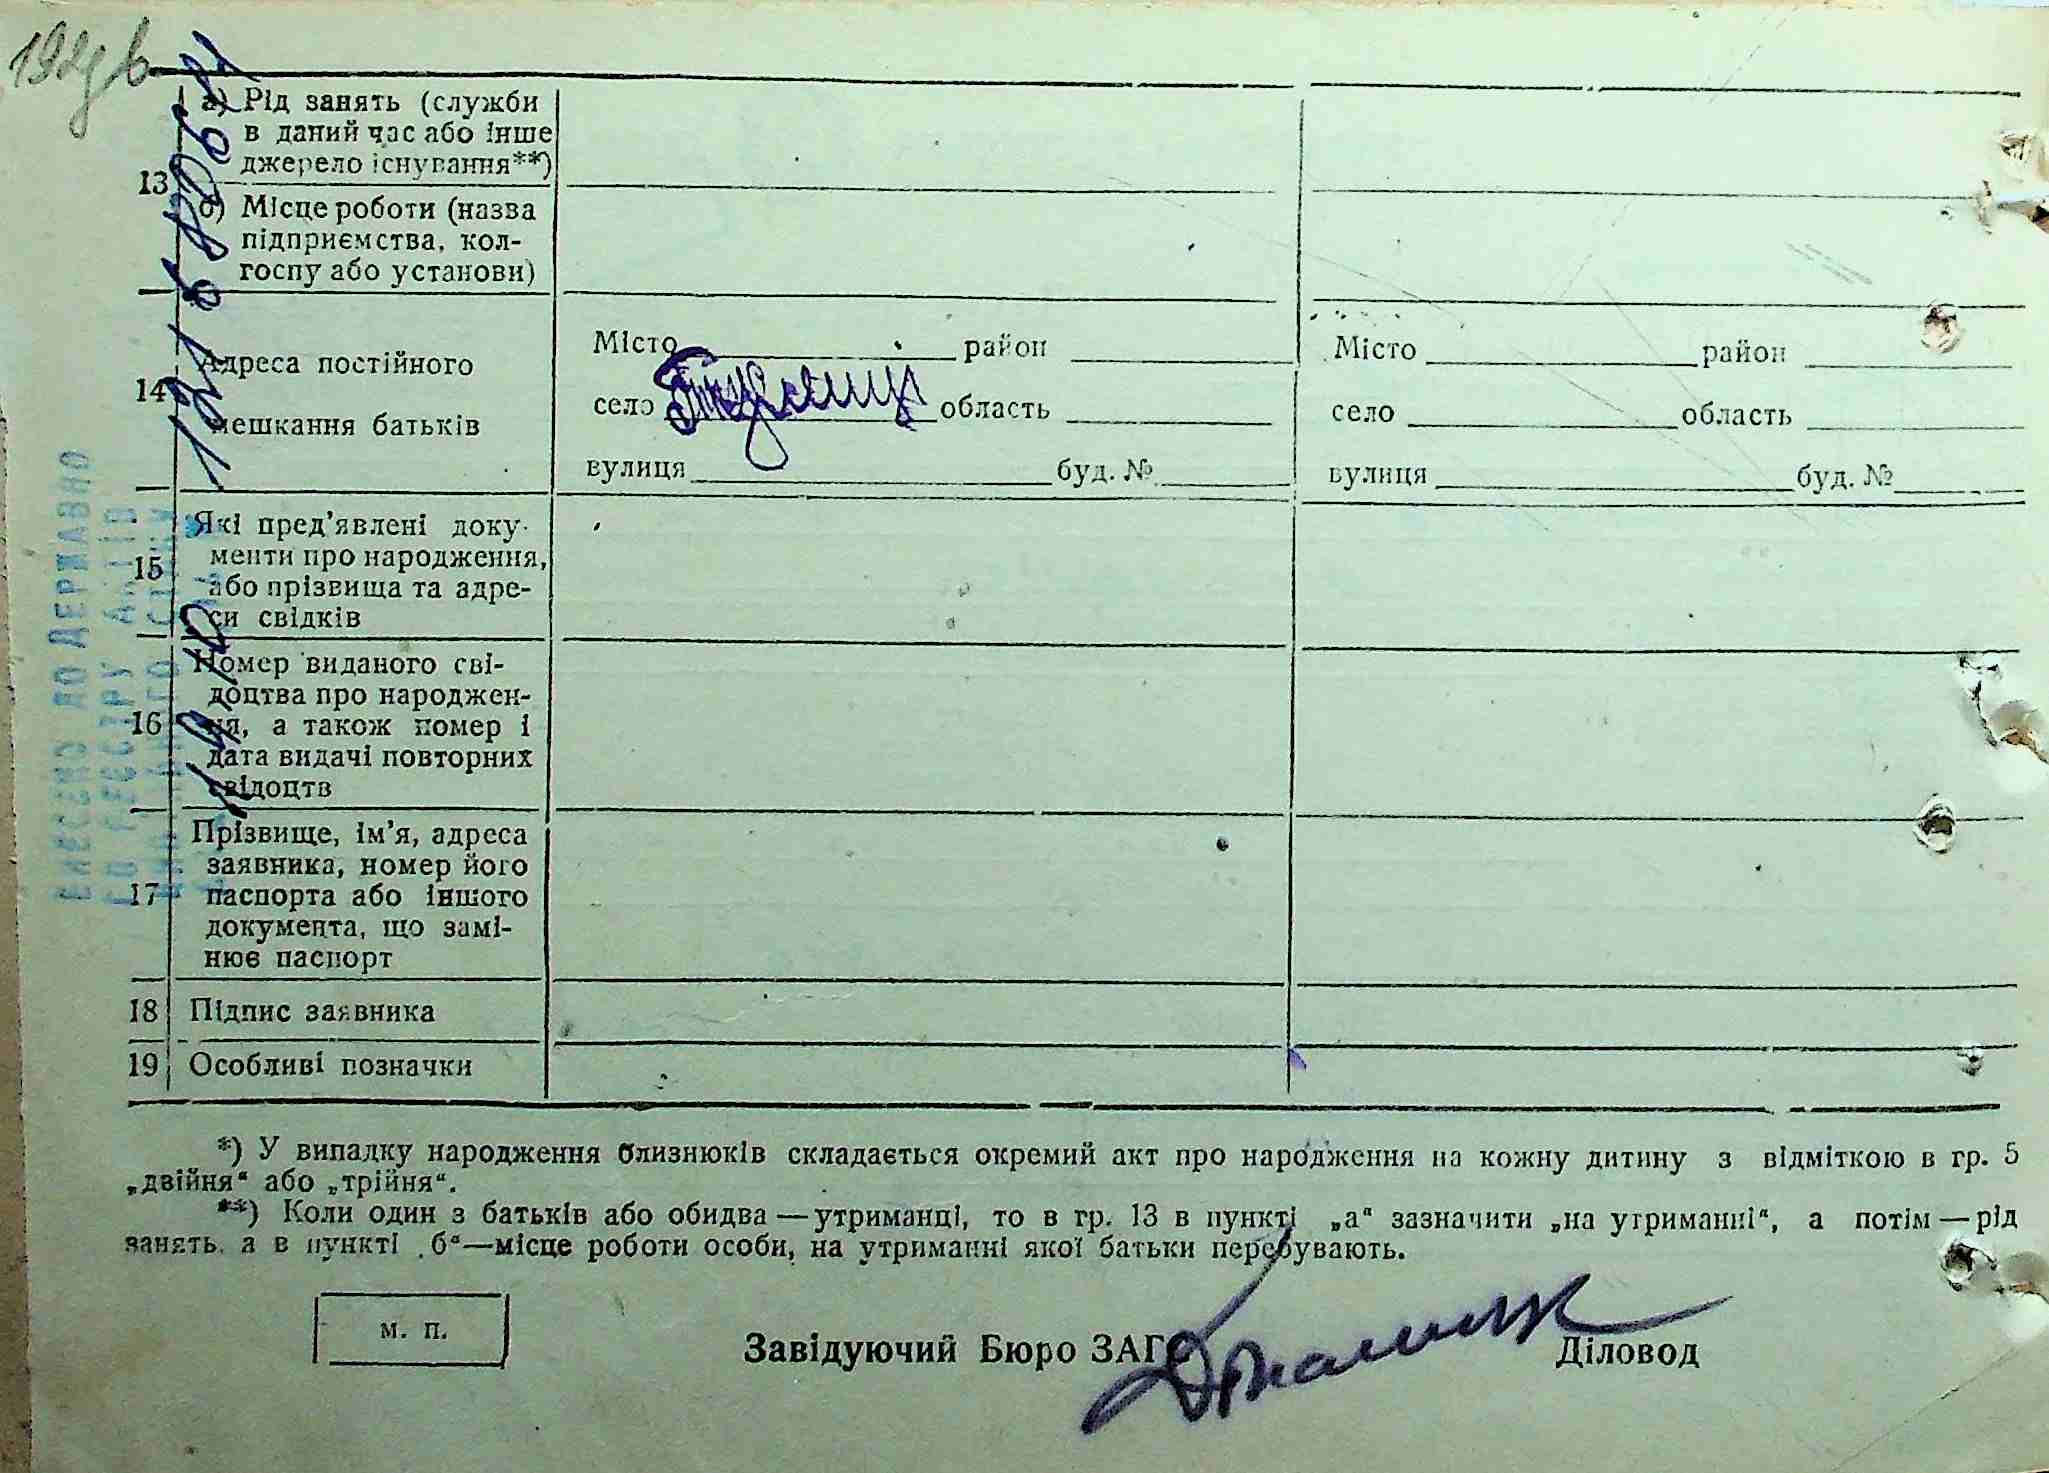 192 зв
13
а) Рід занять (служби
в даний час або інше
джерело існування**)
б) Місце роботи (назва
підприємства, кол-
госпу або установи)
14
Адреса постійного
мешкання батьків
Місто район
село область
вулиця буд. №
Місто район
село область
вулиця буд. №
15
Які пред’явлені доку-
менти про народження,
або прізвища та адре-
си свідків
16
Номер виданого сві-
доцтва про народжен-
ня, а також номер і
дата видачі повторних
свідоцтв
17
Прізвище, ім’я, адреса
заявника, номер його
паспорта або іншого
документа, що замі-
нює паспорт
18 Підпис заявника
19 Особливі позначки
ВНЕСЕНО ДО ДЕРЖАВНО
ГО РЕЄСТРУ АКТІВ
*) У випадку народження близнюків складається окремий акт про народження на кожну дитину з відміткою в гр. 5
„двійня“ або „трійня“.
**) Коли один з батьків або обидва — утриманці, то в гр. 13 в пункті „а“ зазначити „на утриманні“, а потім — рід
занять, а в пункті „б“—місце роботи особи, на утриманні якої батьки перебувають.
м. п.
Завідуючий Бюро ЗАГС Діловод